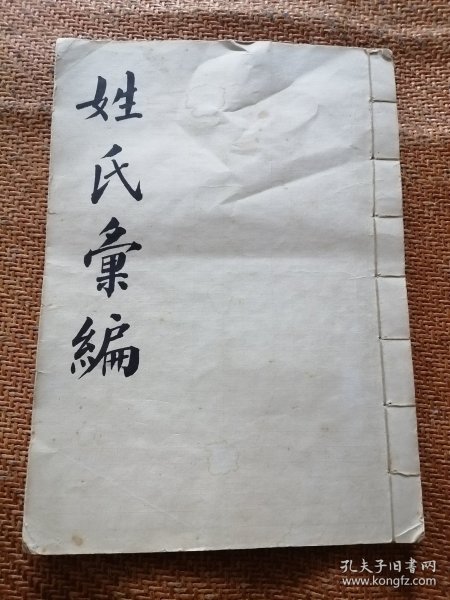 姓氏彙編
孔夫子旧书网
www.kongfz.com